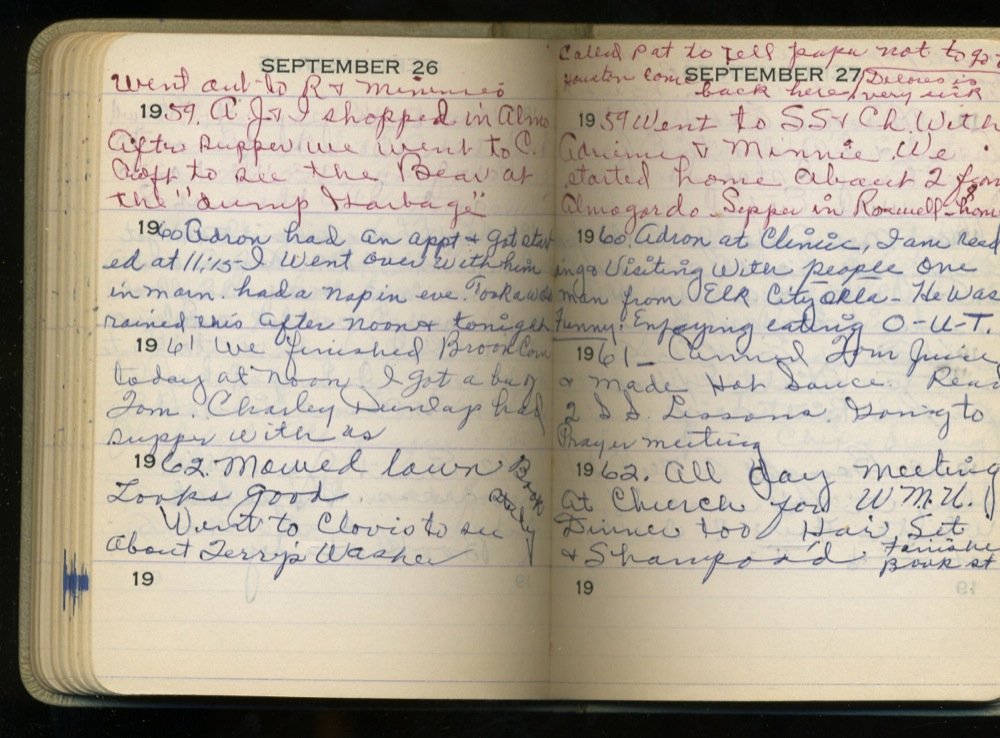 SEPTEMBER 26
Went out to R & Minnies
1959. A. J & I shopped in Almo
After supper we went to C.
Croft to see the Bear at
the "dump Garbage"
1960 Adron had an appt & got start
ed at 11:15 - I went over with him
in morn. had a nap in eve. Took a walk
rained this after noon & tonight
1961 We finished Broom Corn
today at noon. I got a bu of
Tom. Charley Dunlap had
supper with us
1962. Mowed lawn Book
Looks good. study
Went to Clovis to see
About Terry's Washer
19
Called Pat to tell papa not to go to
Houston come SEPTEMBER 27 Delores is
back here, very sick
1959 Went to SS & Ch. With
& Minnie. We
started home about 2 from
Almogordo. Supper in Roswell - home
1960. Adron at Clinic, I am read
ing & Visiting with people one
man from Elk City Okla - He was
Funny. Enjoying eating O-U-T.
1961 - Canned Tom Juice
& made Hot Sauce. Read
2 S. S. Lessons. Going to
Prayer meeting
1962. All day meeting
at Church for W.M.U.
Dinner too Hair Set
& Shampoo'd finishe
Book st
19